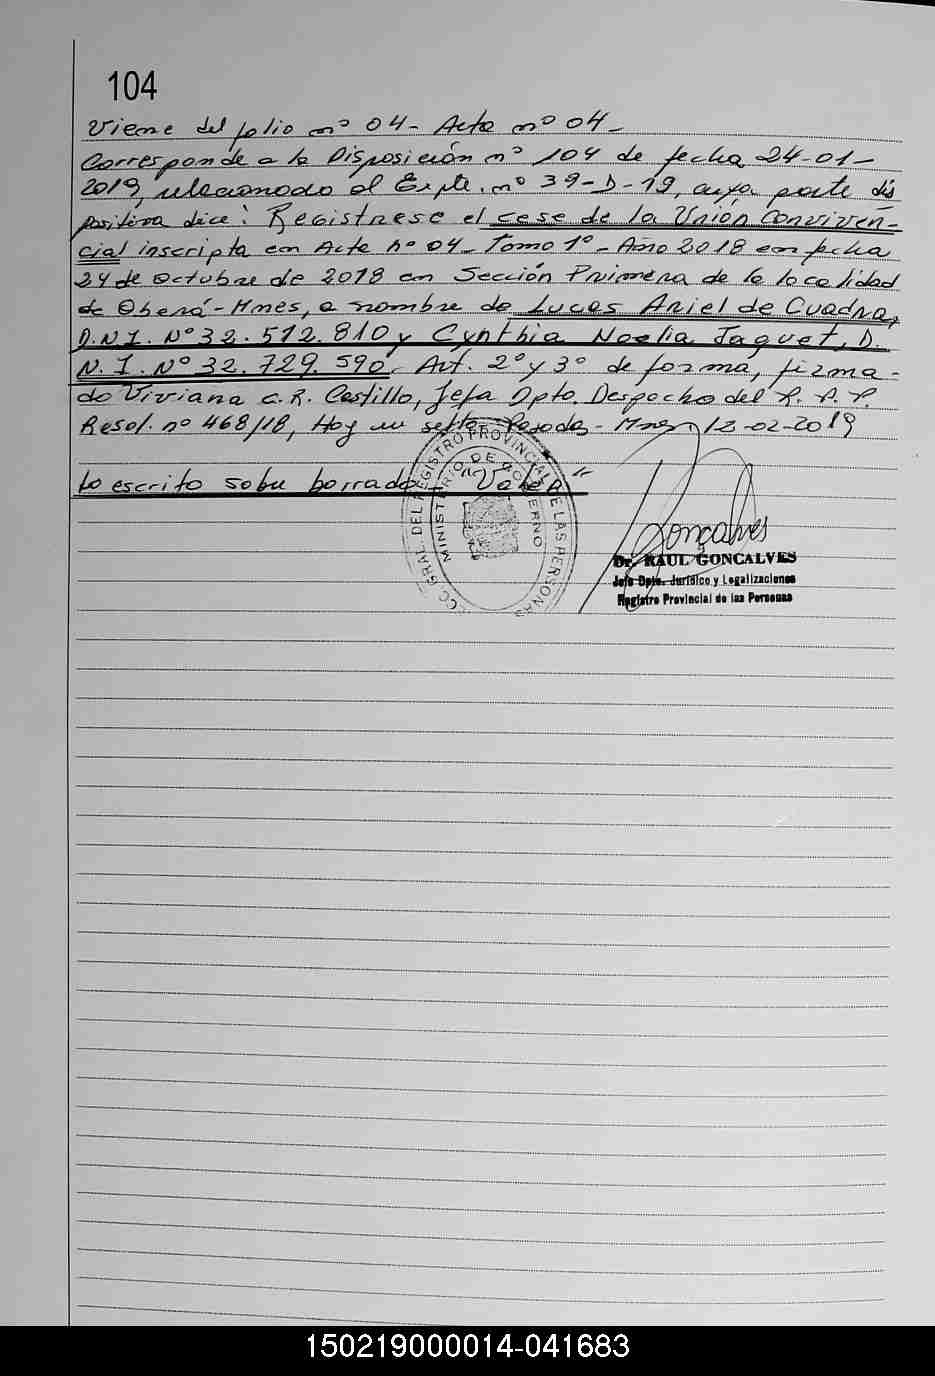 104
Viene del folio nº 04- Acta nº 04-
Corresponde a la Disposición nº 104 de fecha 24-01-
2019, relacionado al Expte. nº 39-D-19, cuya parte dis
positiva dice: Registrese el cese de la Unión Conviven-
cial inscripta en Acta nº 04- Tomo 1º- Año 2018 en fecha
24 de Octubre de 2018 en Sección Primera de la localidad
de Oberá-Mnes, a nombre de Lucas Ariel de Cuadra,
D.N.I. Nº 32.512.810 y Cynthia Noelia Jaquet, D.
N.I. Nº 32.729.590. Art. 2º y 3º de forma, firma-
do Viviana C.R. Castillo, Jefa Dpto. Despacho del R.P.P.
Resol. nº 468/18, Hoy se Posadas- Mnes 12-02-2019
Lo escrito sobre borrado "Vale"
GRAL. DEL REGISTRO PROVINCIAL DE LAS PERSONAS
MINISTERIO DE GOBIERNO
Goncalves
Dr. RAUL GONCALVES
Jefe Dpto. Jurídico y Legalizaciones
Registro Provincial de las Personas
150219000014-041683